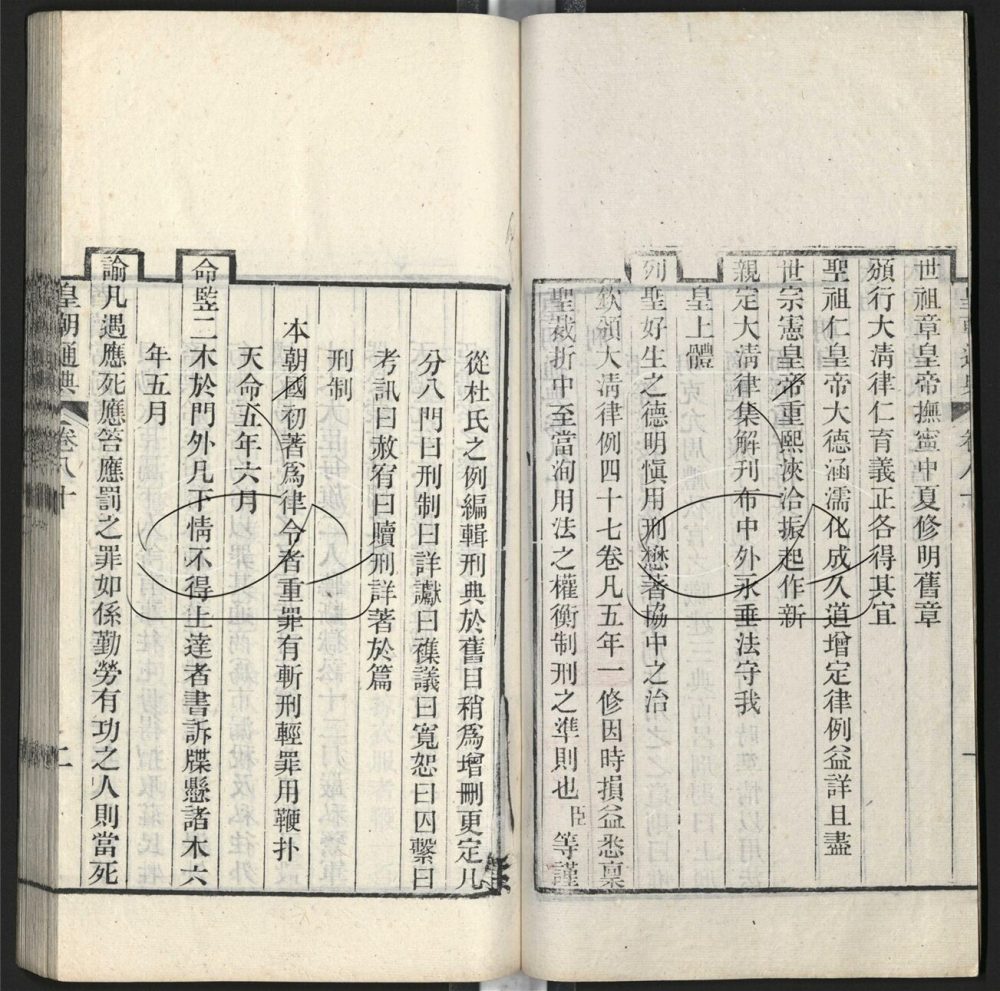 世祖章皇帝撫寧中夏修明舊章
頒行大淸律仁育義正各得其宜
聖祖仁皇帝大德涵濡化成久道增定律例益詳且盡
世宗憲皇帝重熙浹洽振起作新
親定大淸律集解刋布中外永垂法守我
皇上體
列聖好生之德明愼用刑懋著協中之治
欽頒大淸律例四十七卷凡五年一修因時損益悉稟
聖裁折中至當洵用法之權衡制刑之準則也臣等謹
從杜氏之例編輯刑典於舊目稍爲增刪更定凡
分八門曰刑制曰詳讞曰雜議曰寬恕曰囚繫曰
考訊曰赦宥曰贖刑詳著於篇
刑制
本朝國初著爲律令者重罪有斬刑輕罪用鞭扑
天命五年六月
命竪二木於門外凡下情不得上達者書訴牒懸諸木六
年五月
諭凡遇應死應笞應罰之罪如係勤勞有功之人則當死
皇朝通典 卷八十 二